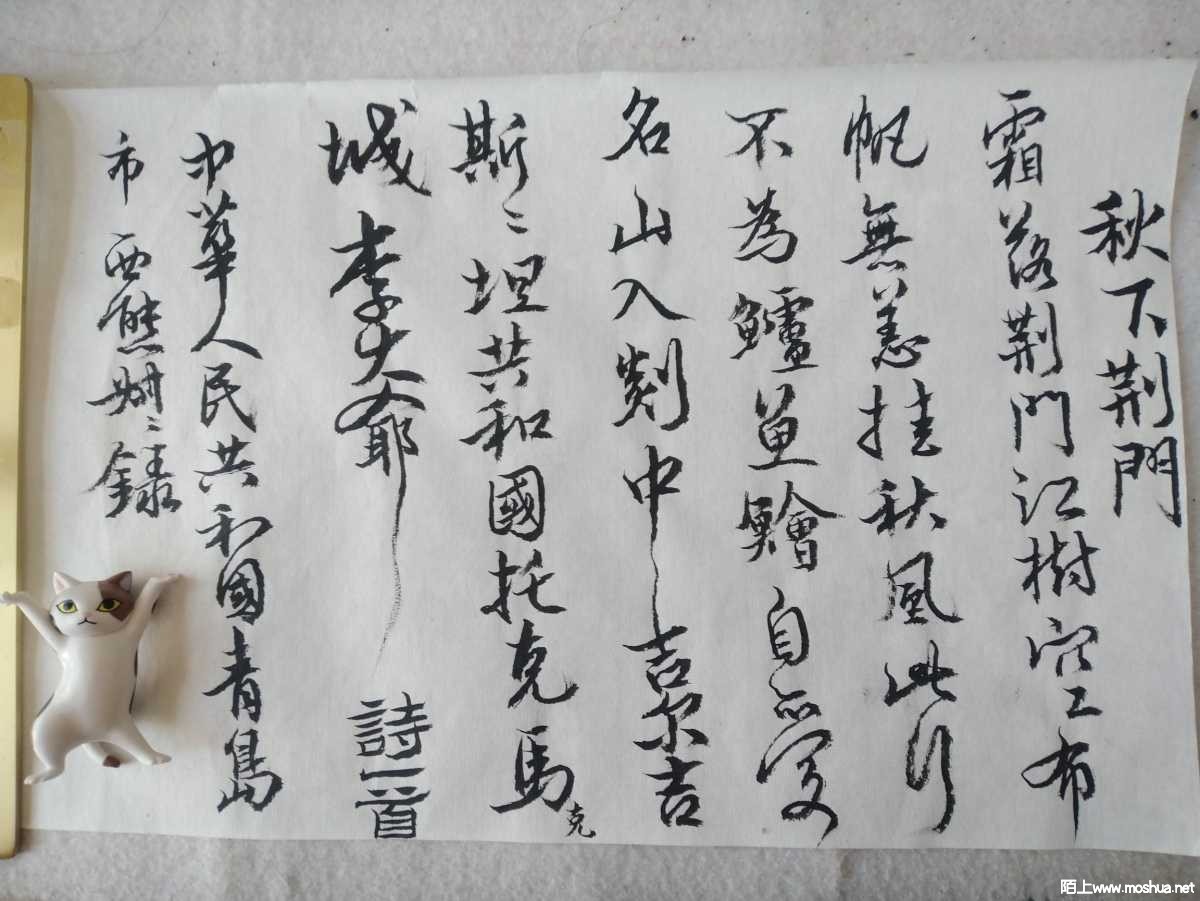 秋下荆門
霜落荆門江樹空布
帆無恙挂秋風此行
不為鱸魚鱠自愛
名山入剡中吉尔吉
斯〻坦共和國托克馬克
城李大爺詩一首
中華人民共和國青島
市西熊〻錄
陌上www.moshua.net